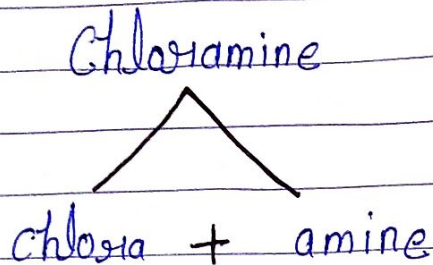 Chloramine
chlora + amine